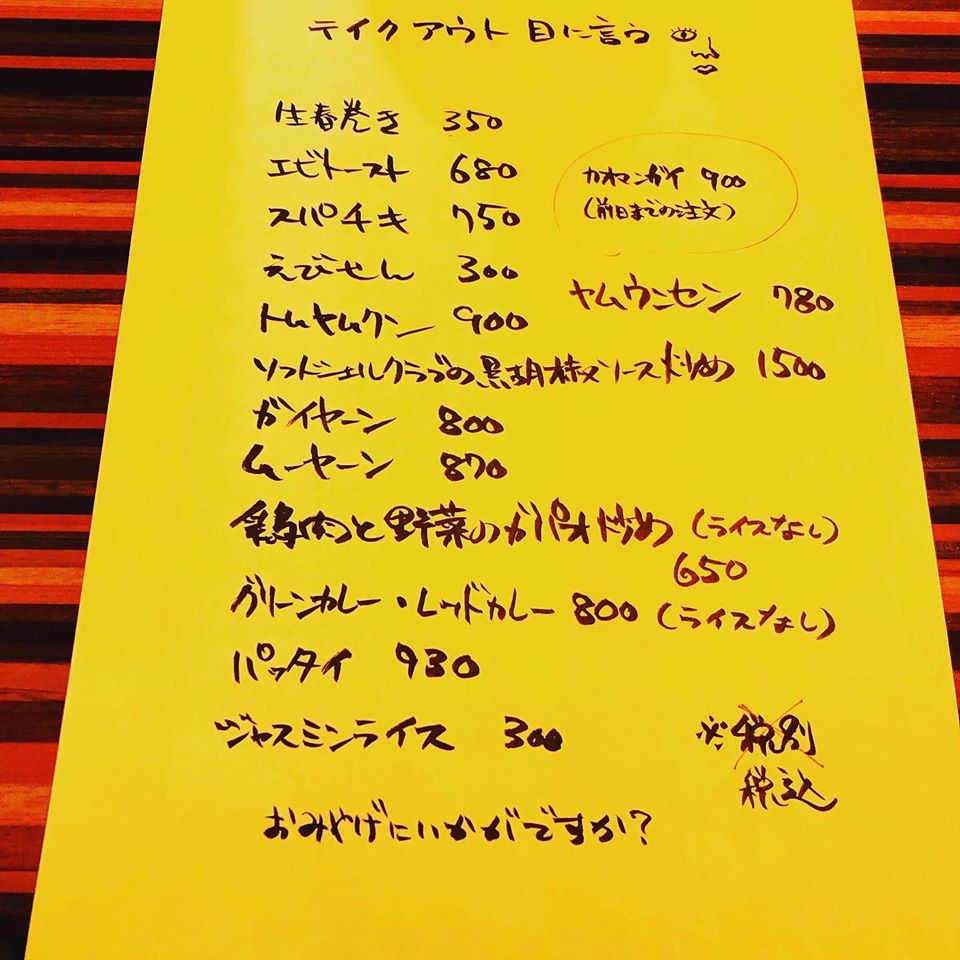 テイクアウト 目に言う
生春巻き 350
エビトースト 680
カオマンガイ 900
(前日までの注文)
スパチキ 750
えびせん 300
ヤムウンセン 780
トムヤムクン 900
ソフトシェルクラブの黒胡椒ソース炒め 1500
ガイヤーン 800
ムーヤーン 870
鶏肉と野菜のガパオ炒め (ライスなし)
650
グリーンカレー・レッドカレー 800 (ライスなし)
パッタイ 930
ジャスミンライス 300
※税別
税込
おみやげにいかがですか?